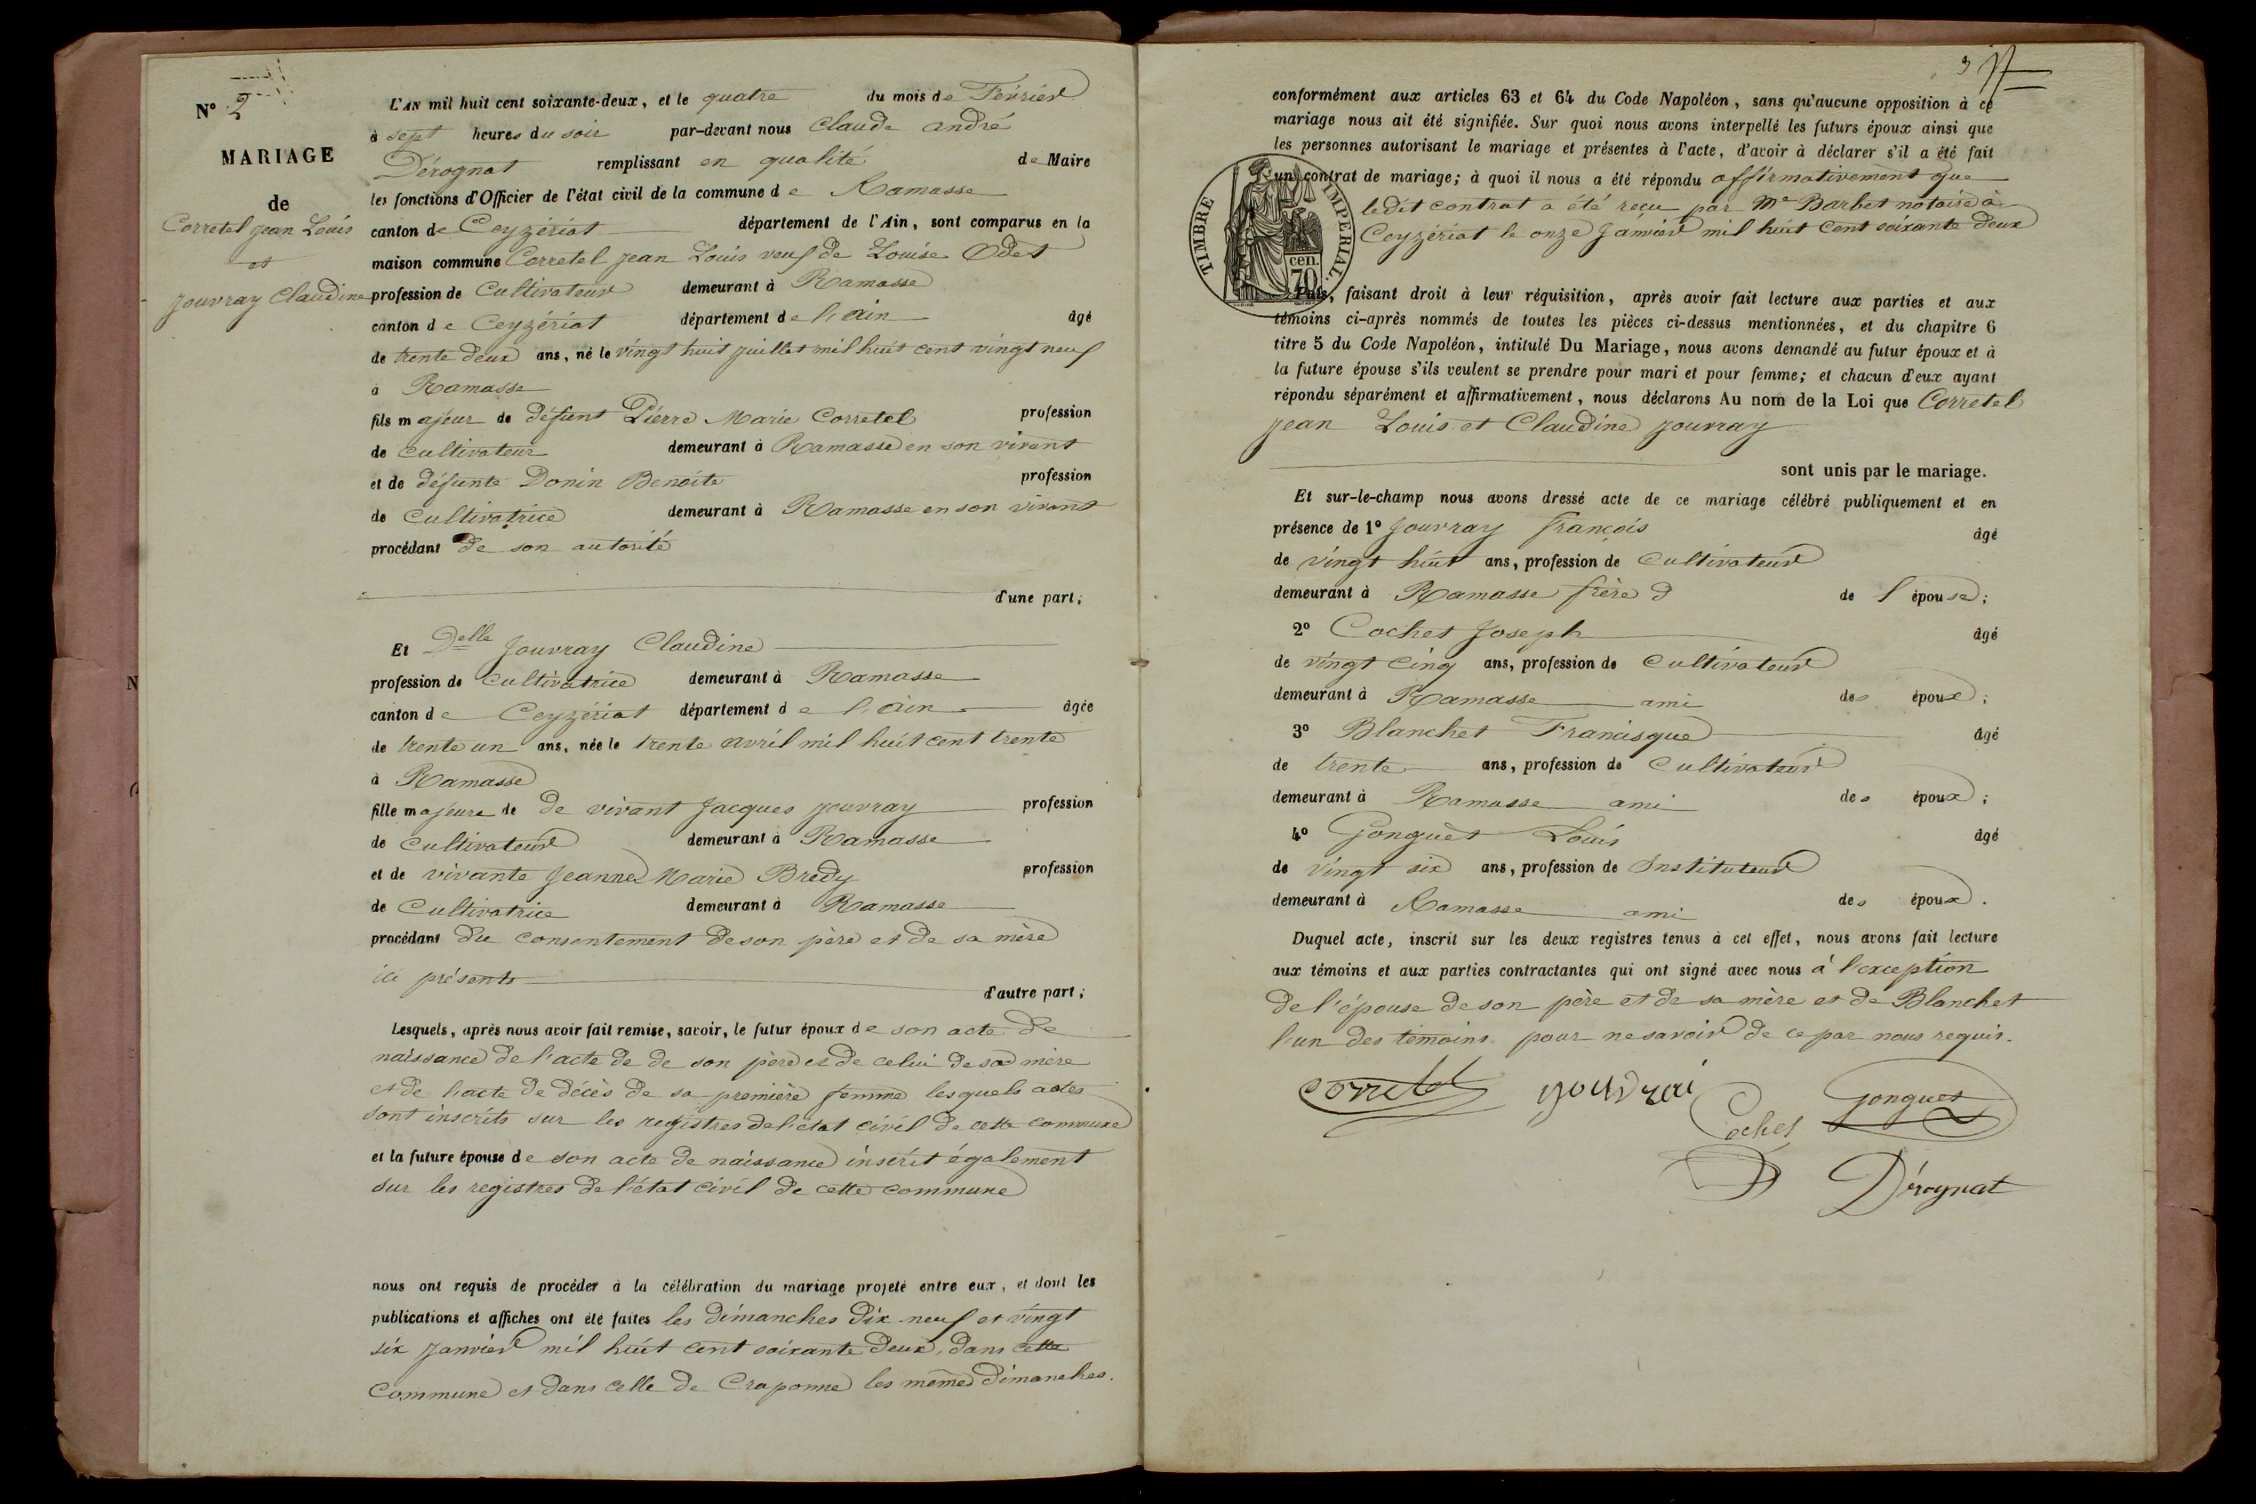 N° 2
MARIAGE
de
Corretel Jean Louis
et
Jouvray Claudine
L'AN mil huit cent soixante-deux, et le quatre du mois de Février
à sept heures du soir par-devant nous Claude André
Dérognat remplissant en qualité de Maire
les fonctions d'Officier de l'état civil de la commune de Ramasse
canton de Ceyzériat département de l'Ain, sont comparus en la
maison commune Corretel Jean Louis veuf de Louise Odet
profession de Cultivateur demeurant à Ramasse
canton de Ceyzériat département de l'ain âgé
de trente deux ans, né le vingt huit juillet mil huit cent vingt neuf
à Ramasse
fils majeur de défunt Pierre Marie Corretel profession
de cultivateur demeurant à Ramasse en son vivant
et de défunte Donin Benoite profession
de Cultivatrice demeurant à Ramasse en son vivant
procédant de son autorité
d'une part;
Et Delle Jouvray Claudine
profession de Cultivatrice demeurant à Ramasse
canton de Ceyzériat département de l'ain âgée
de trente un ans, née le trente avril mil huit cent trente
à Ramasse
fille majeure de de vivant Jacques Jouvray profession
de cultivateur demeurant à Ramasse
et de vivante Jeanne Marie Bredy profession
de Cultivatrice demeurant à Ramasse
procédant du consentement de son père et de sa mère
ici présents
d'autre part;
Lesquels, après nous avoir fait remise, savoir, le futur époux de son acte de
naissance de l'acte de de son père et de celui de sa mère
et de l'acte de décès de sa première femme lesquels actes
sont inscrits sur les registres de l'état civil de cette commune
et la future épouse de son acte de naissance inscrit également
sur les registres de l'état civil de cette commune
nous ont requis de procéder à la célébration du mariage projeté entre eux, et dont les
publications et affiches ont été faites les dimanches dix neuf et vingt
six janvier mil huit cent soixante deux, dans cette
commune et dans celle de Craponne les mêmes dimanches.
3
conformément aux articles 63 et 64 du Code Napoléon, sans qu'aucune opposition à ce
mariage nous ait été signifiée. Sur quoi nous avons interpellé les futurs époux ainsi que
les personnes autorisant le mariage et présentes à l'acte, d'avoir à déclarer s'il a été fait
un contrat de mariage; à quoi il nous a été répondu affirmativement que
ledit contrat a été reçu par Me Barbet notaire à
Ceyzériat le onze janvier mil huit cent soixante deux
TIMBRE IMPERIAL.
cen.
70
Puis, faisant droit à leur réquisition, après avoir fait lecture aux parties et aux
témoins ci-après nommés de toutes les pièces ci-dessus mentionnées, et du chapitre 6
titre 5 du Code Napoléon, intitulé Du Mariage, nous avons demandé au futur époux et à
la future épouse s'ils veulent se prendre pour mari et pour femme; et chacun d'eux ayant
répondu séparément et affirmativement, nous déclarons Au nom de la Loi que Corretel
Jean Louis et Claudine Jouvray
sont unis par le mariage.
Et sur-le-champ nous avons dressé acte de ce mariage célébré publiquement et en
présence de 1° Jouvray François âgé
de vingt huit ans, profession de Cultivateur
demeurant à Ramasse frère d de l'épouse;
2° Cochet Joseph âgé
de vingt cinq ans, profession de Cultivateur
demeurant à Ramasse ami des époux;
3° Blanchet Francisque âgé
de trente ans, profession de Cultivateur
demeurant à Ramasse ami des époux;
4° Gonguet Louis âgé
de vingt six ans, profession de Instituteur
demeurant à Ramasse ami des époux.
Duquel acte, inscrit sur les deux registres tenus à cet effet, nous avons fait lecture
aux témoins et aux parties contractantes qui ont signé avec nous à l'exception
de l'épouse de son père et de sa mère et de Blanchet
l'un des témoins pour ne savoir de ce par nous requis.
Corretel Jouvrai Cochet Gonguet
Dérognat